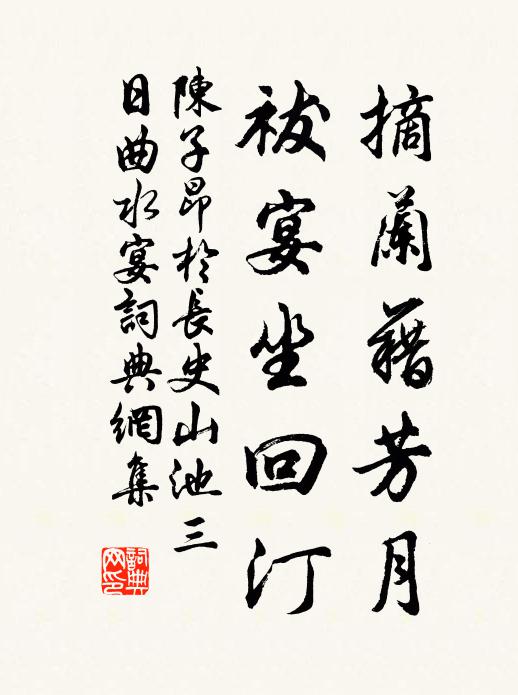 摘蘭藉芳月
祓宴坐回汀
陳子昂於長史山池三
日曲水宴詞典網集
詞典网印